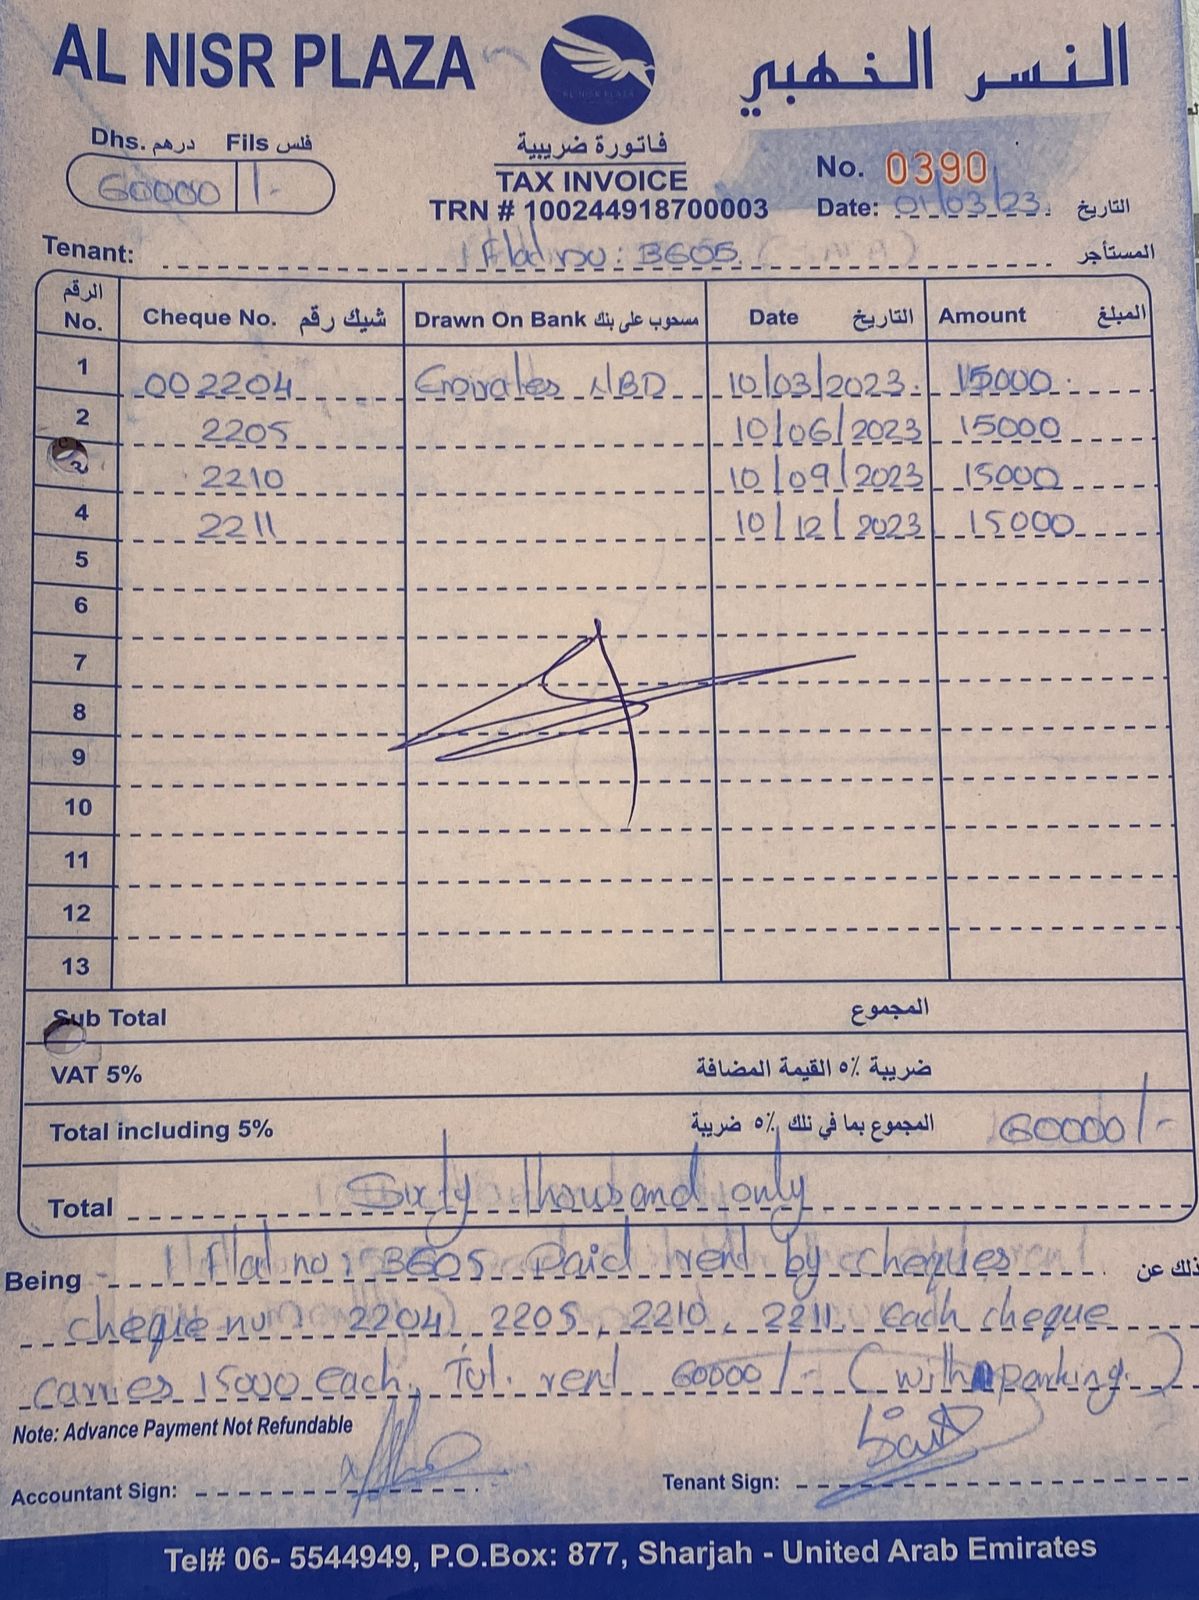 AL NISR PLAZA
النسر الذهبي
AL NISR PLAZA
Dhs. درهم Fils فلس
60000 /-
فاتورة ضريبية
TAX INVOICE
TRN # 100244918700003
No. 0390
Date: 01/03/23. التاريخ
Tenant: Flat no: B605 المستأجر
الرقم No. Cheque No. شيك رقم Drawn On Bank مسحوب على بنك Date التاريخ Amount المبلغ
1 002204 Emirates NBD 10/03/2023. 15000
2 2205 10/06/2023 15000
3 2210 10/09/2023 15000
4 2211 10/12/2023 15000
5
6
7
8
9
10
11
12
13
Sub Total المجموع
VAT 5% ضريبة ٥٪ القيمة المضافة
Total including 5% المجموع بما في ذلك ٥٪ ضريبة 60000/-
Total Sixty thousand only
Being Flat no: B605 Paid rent by cheques ذلك عن
cheque no 2204, 2205, 2210, 2211, each cheque
carries 15000 each, Tot. rent 60000/- (with parking.)
Note: Advance Payment Not Refundable
Accountant Sign: Tenant Sign:
Tel# 06- 5544949, P.O.Box: 877, Sharjah - United Arab Emirates